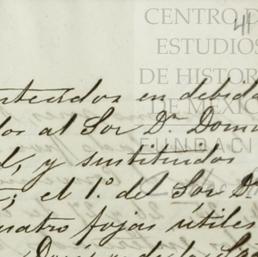 41
CENTRO D
ESTUDIOS
DE HISTOR
DE MEXIC
FUNDACI
ntecados en debida
os al Sor Dn. Domi
d, y sustituidos
; el 1º del Sor D
uatro fojas útiles